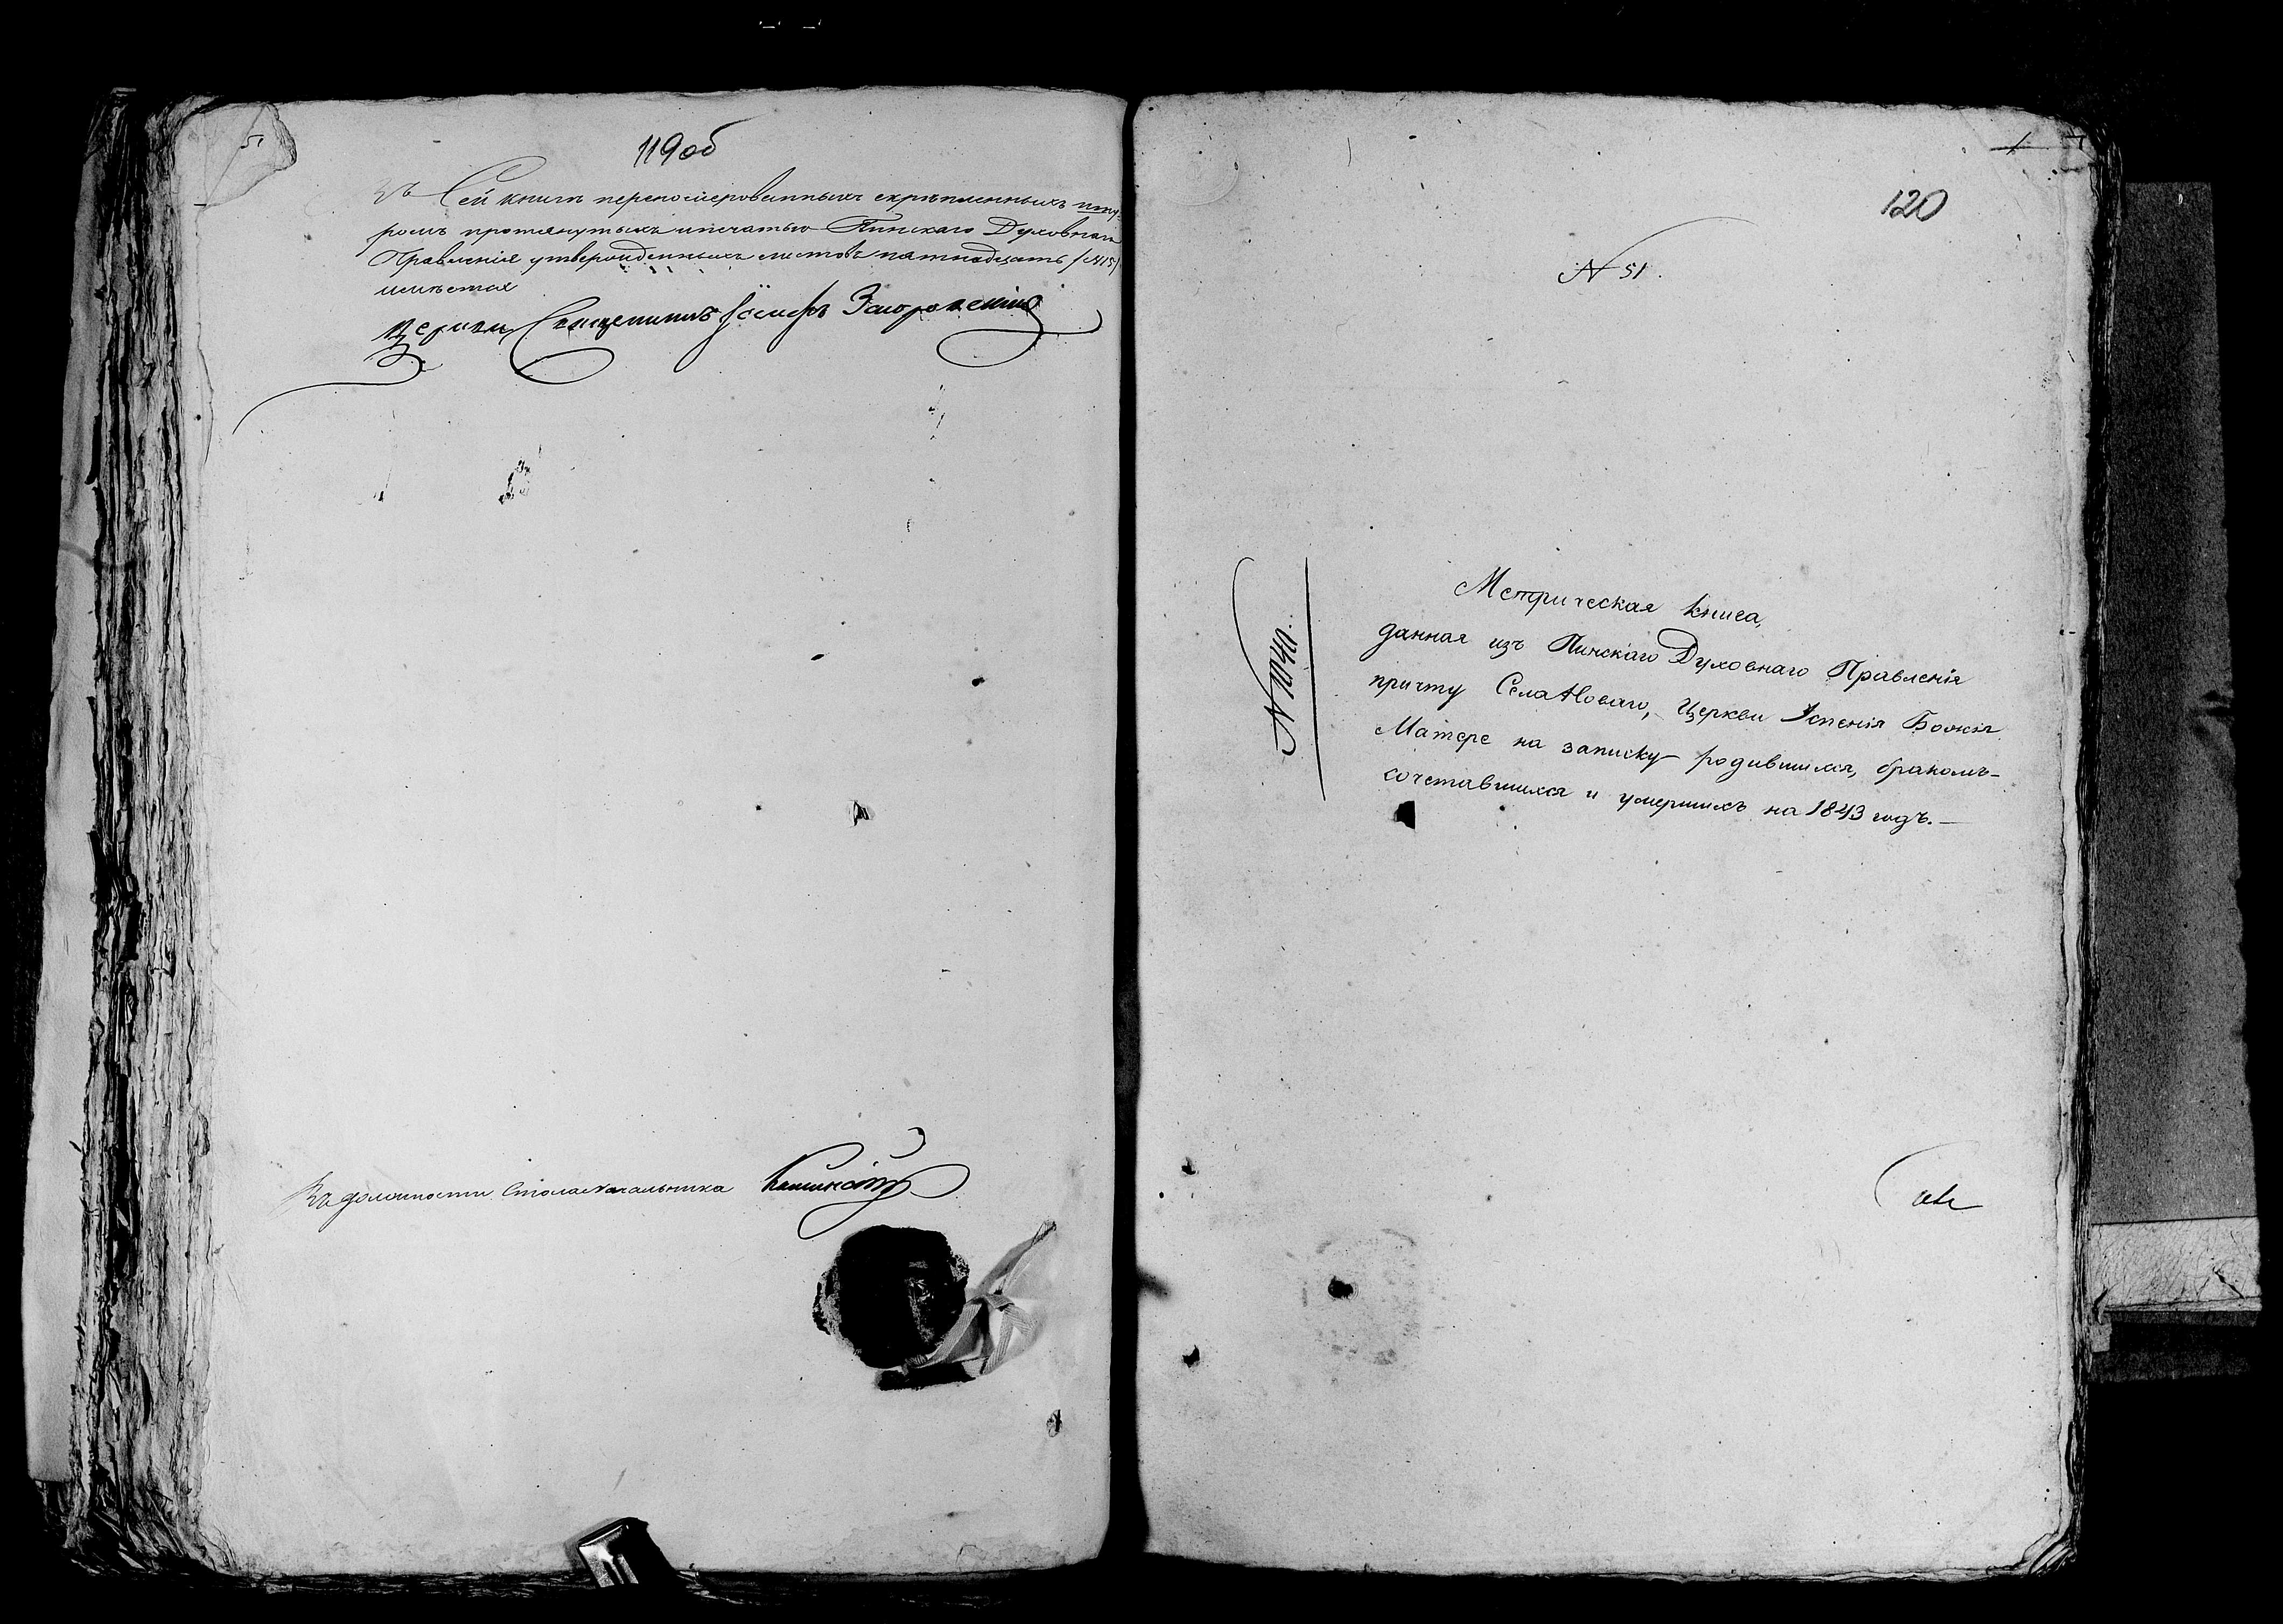 51
119об
Въ Сей книгѣ перенумерованныхъ скрѣпленныхъ шну-
ромъ протянутыхъ и печатью Пинскаго Духовнаго
Правленія утвержденныхъ листовъ пятнадцать (N15)
имѣется
Священникъ Іосифъ
Въ должности Столоначальника
1
120
N 51.
N 1040.
Метрическая книга,
данная изъ Пинскаго Духовнаго Правленія
причту Села Новаго, Церкви Успенія Божія
Матере на записку родившихся, бракомъ-
сочетавшихся и умершихъ на 1843 годъ.—